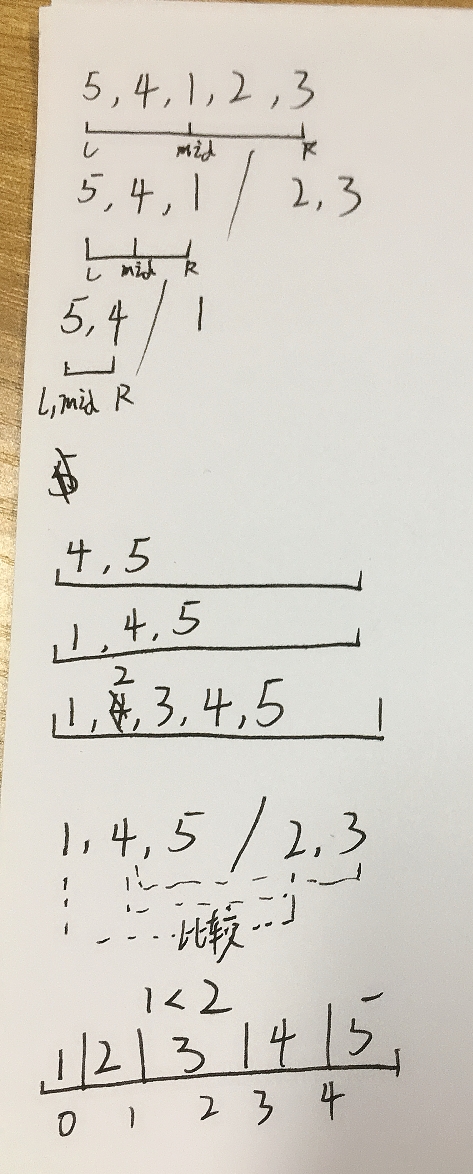 5, 4, 1, 2, 3
L mid R
5, 4, 1 / 2, 3
L mid R
5, 4 / 1
L, mid R
4, 5
1, 4, 5
2
1, 3, 4, 5
1, 4, 5 / 2, 3
比较
1 < 2
1 | 2 | 3 | 4 | 5
0 1 2 3 4